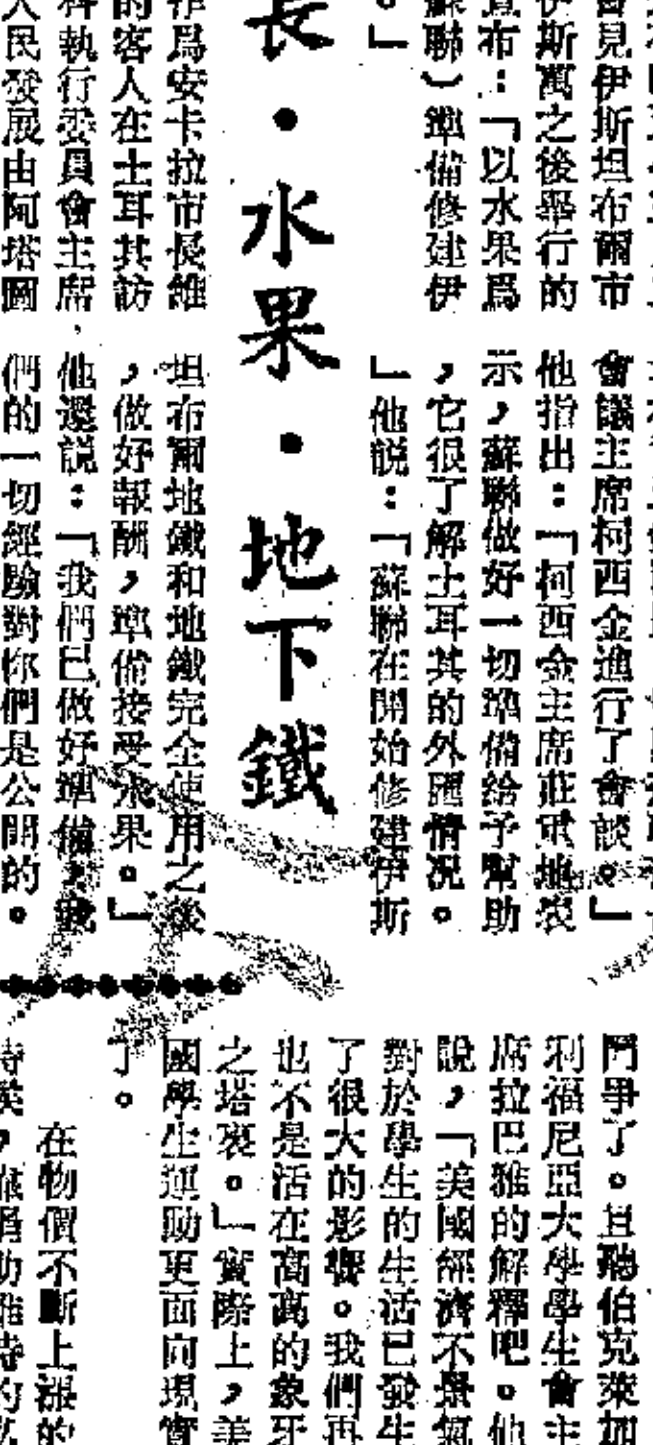 會見伊斯坦布爾市
伊斯萬之後舉行的
宣布：「以水果爲
蘇聯）準備修建伊
。」
長・水果・地下鐵
作爲安卡拉市長維
的客人在土耳其訪
科執行委員會主席，
人民發展由阿塔圖
會議主席柯西金進行了會談。」
他指出：「柯西金主席莊重地表
示，蘇聯做好一切準備給予幫助
，它很了解土耳其的外匯情况。
」他說：「蘇聯在開始修建伊斯
坦布爾地鐵和地鐵完全使用之後
，做好報酬，準備接受水果。」
他還說：「我們已做好準備，我
們的一切經驗對你們是公開的。
鬥爭了。且聽伯克萊加
利福尼亞大學學生會主
席拉巴雅的解釋吧。他
說，「美國經濟不景氣
對於學生的生活已發生
了很大的影響。我們再
也不是活在高高的象牙
之塔裏。」實際上，美
國學生運動更面向現實
了。
在物價不斷上漲的